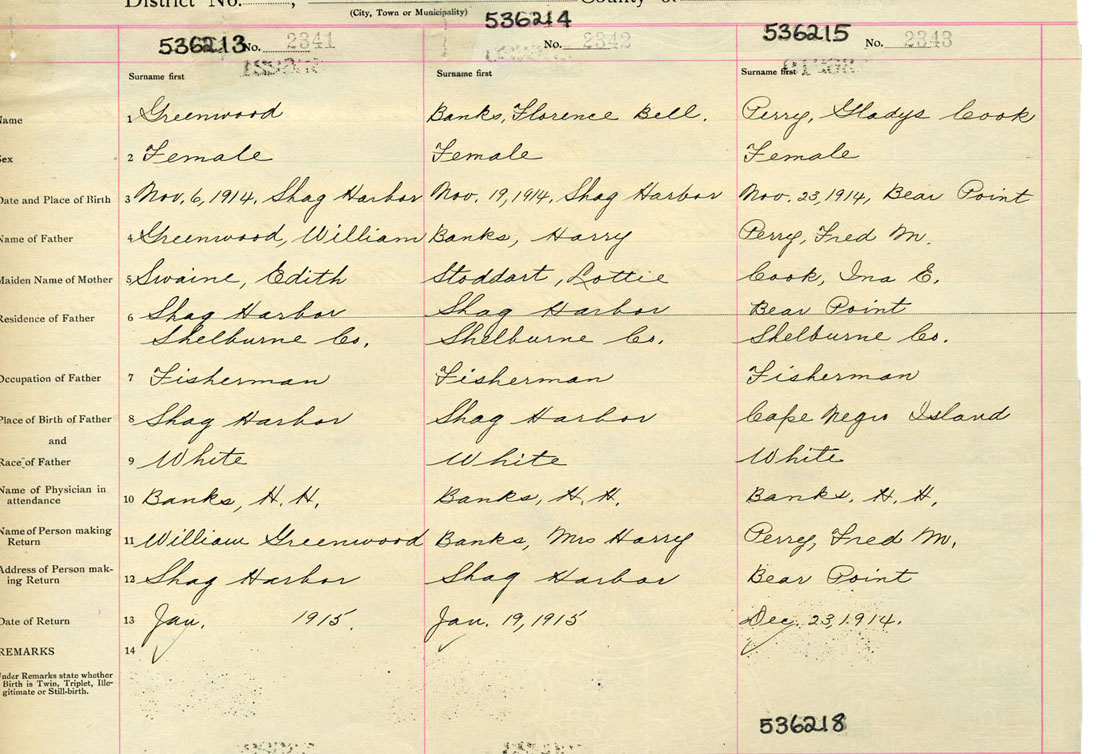 District No. , County of
(City, Town or Municipality)
536213 No. 2341 536214 No. 2342 536215 No. 2343
Surname first Surname first Surname first
Name 1 Greenwood Banks, Florence Bell. Perry, Gladys Cook
Sex 2 Female Female Female
Date and Place of Birth 3 Nov. 6, 1914, Shag Harbor Nov. 19, 1914, Shag Harbor Nov. 23, 1914, Bear Point
Name of Father 4 Greenwood, William Banks, Harry Perry, Fred M.
Maiden Name of Mother 5 Swaine, Edith Stoddart, Lottie Cook, Ina E.
Residence of Father 6 Shag Harbor Shag Harbor Bear Point
Shelburne Co. Shelburne Co. Shelburne Co.
Occupation of Father 7 Fisherman Fisherman Fisherman
Place of Birth of Father 8 Shag Harbor Shag Harbor Cape Negro Island
and
Race of Father 9 White White White
Name of Physician in
attendance 10 Banks, H. H. Banks, H. H. Banks. H. H.
Name of Person making
Return 11 William Greenwood Banks, Mrs Harry Perry, Fred M.
Address of Person mak-
ing Return 12 Shag Harbor Shag Harbor Bear Point
Date of Return 13 Jan. 1915. Jan. 19, 1915 Dec. 23 1914.
REMARKS 14
Under Remarks state whether
Birth is Twin, Triplet, Ille-
gitimate or Still-birth.
536218